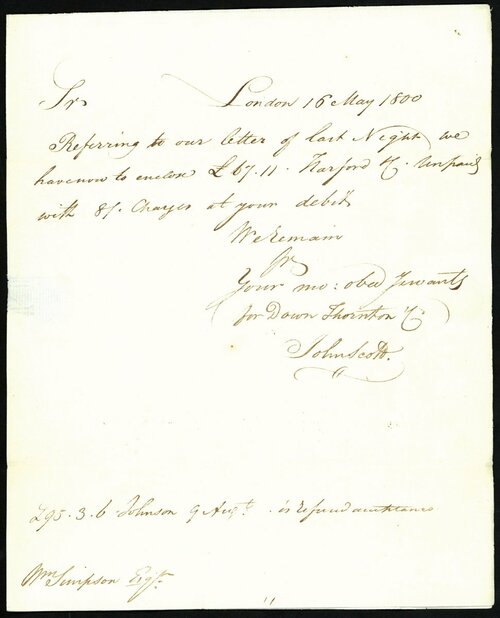 Sr
London 16 May 1800
Referring to our letter of last Night, we
have now to enclose £67.11. Harford & C. Unpaid
with 8/. Charges at your debit
We remain
Sr
Your mo: obed Servants
for Down Thornton & C
John Scott.
£95.3.6 Johnson 9 Augt. is refused acceptance
Wm Simpson Esqr.